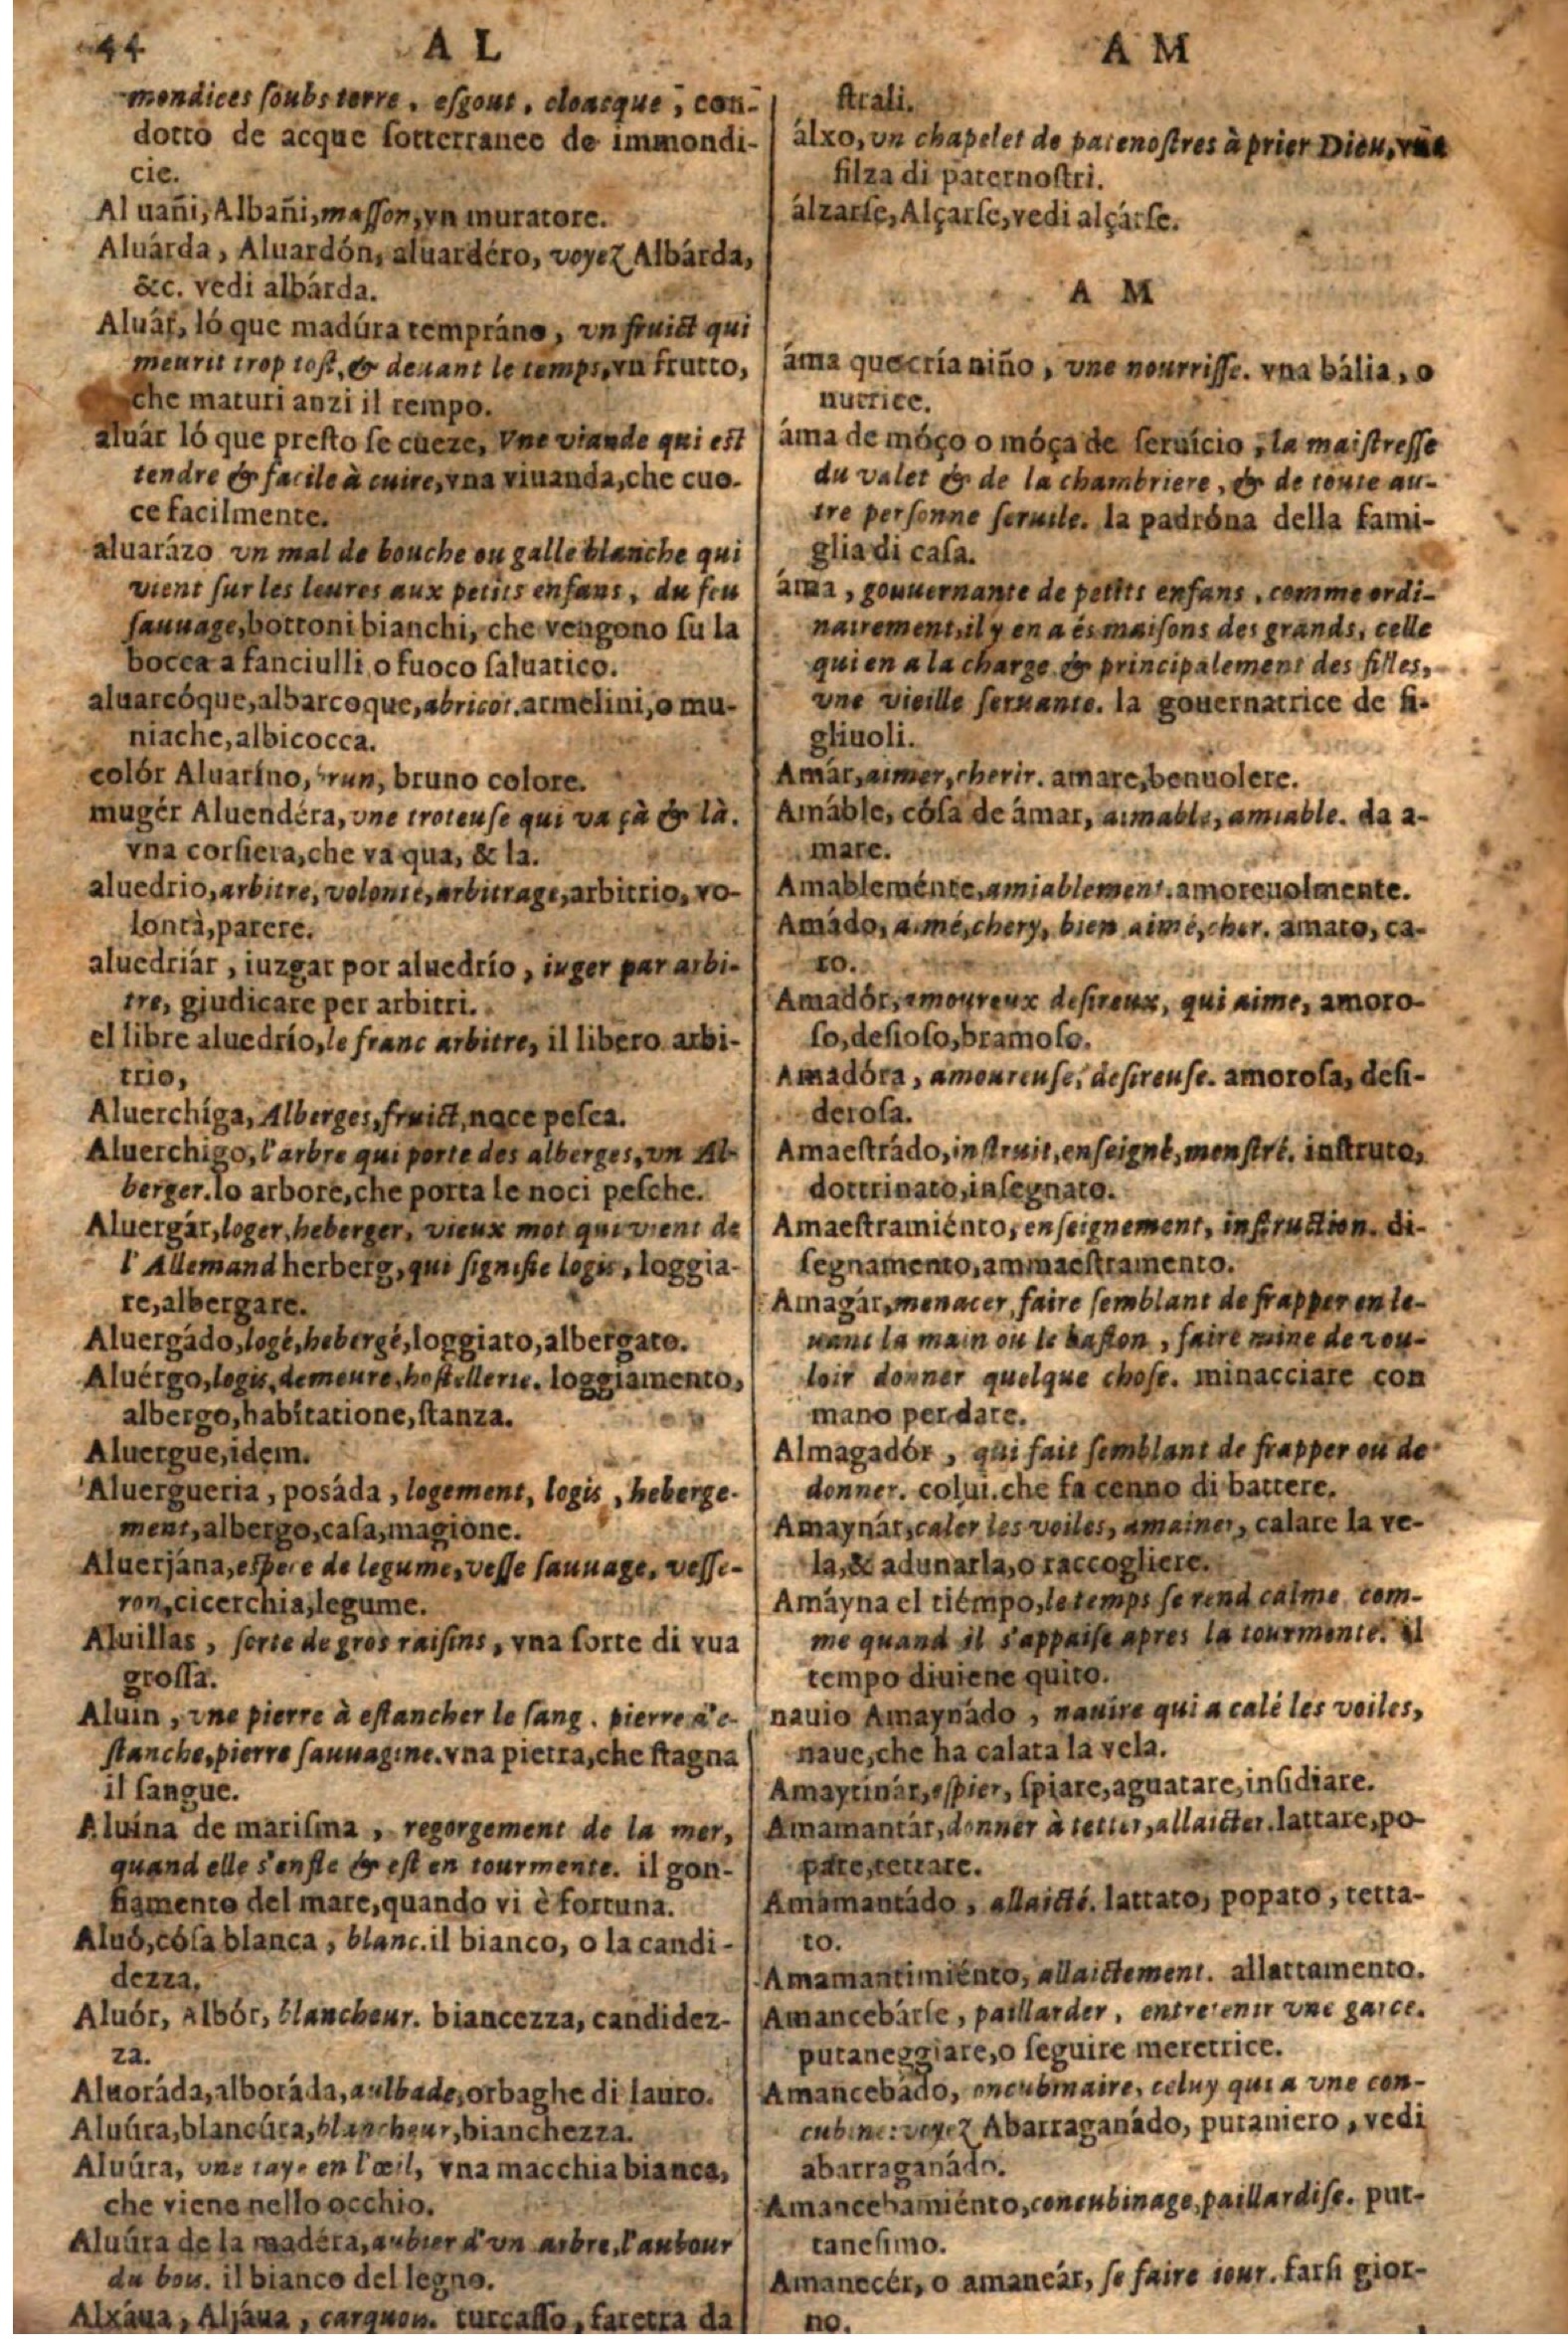 44 A L
mondices soubs terre, esgout, cloacque, con-
dotto de acque sotterranee de immondi-
cie.
Aluañi, Albañi, masson, vn muratore.
Aluárda, Aluardón, aluardéro, voyez Albárda,
&c. vedi albárda.
Aluár, ló que madúra tempráno, vn fruict qui
meurit trop tost, & deuant le temps, vn frutto,
che maturi anzi il tempo.
aluár ló que presto se cueze, vne viande qui est
tendre & facile à cuire, vna viuanda, che cuo-
ce facilmente.
aluarázo vn mal de bouche ou galle blanche qui
vient sur les leures aux petits enfans, du feu
sauuage, bottoni bianchi, che vengono su la
bocca a fanciulli o fuoco saluatico.
aluarcóque, albarcoque, abricot. armelini, o mu-
niache, albicocca.
colór Aluaríno, brun, bruno colore.
mugér Aluendéra, vne troteuse qui va çà & là.
vna corsiera, che va qua, & la.
aluedrio, arbitre, volonté, arbitrage, arbitrio, vo-
lontà, parere.
aluedriár, iuzgar por aluedrío, iuger par arbi-
tre, giudicare per arbitri.
el libre aluedrío, le franc arbitre, il libero arbi-
trio,
Aluerchíga, Alberges, fruict, noce pesca.
Aluerchigo, l'arbre qui porte des alberges, vn Al-
berger. lo arbore, che porta le noci pesche.
Aluergár, loger, heberger, vieux mot qui vient de
l'Allemand herberg, qui signifie logis, loggia-
re, albergare.
Aluergádo, logé, hebergé, loggiato, albergato.
Aluérgo, logis, demeure, hostellerie. loggiamento,
albergo, habitatione, stanza.
Aluergue, idem.
Aluergueria, posáda, logement, logis, heberge-
ment, albergo, casa, magione.
Aluerjána, espece de legume, vesse sauuage, vesse-
ron, cicerchia, legume.
Aluillas, sorte de gros raisins, vna sorte di vua
grossa.
Aluin, vne pierre à estancher le sang. pierre d'e-
stanche, pierre sauuagine. vna pietra, che stagna
il sangue.
Aluína de marisma, regorgement de la mer,
quand elle s'enfle & est en tourmente. il gon-
fiamento del mare, quando vi è fortuna.
Aluó, cósa blanca, blanc. il bianco, o la candi-
dezza.
Aluór, Albór, blancheur. biancezza, candidez-
za.
Aluoráda, alboráda, aulbade, orbaghe di lauro.
Aluúra, blancúra, blancheur, bianchezza.
Aluúra, vne taye en l'œil, vna macchia bianca,
che viene nello occhio.
Aluúra de la madéra, aubier d'vn arbre, l'aubour
du bois. il bianco del legno.
Alxáua, Aljáua, carquon. turcasso, faretra da
A M
strali.
álxo, vn chapelet de patenostres à prier Dieu, vna
filza di paternostri.
álzarse, Alçarse, vedi alçárse.
A M
áma que cría niño, vne nourrisse. vna bália, o
nutrice.
áma de móço o móça de seruício, la maistresse
du valet & de la chambriere, & de toute au-
tre personne seruile. la padróna della fami-
glia di casa.
áma, gouuernante de petits enfans, comme ordi-
nairement, il y en a és maisons des grands, celle
qui en a la charge & principalement des filles,
vne vieille seruante. la gouernatrice de fi-
gliuoli.
Amár, aimer, cherir. amare, benuolere.
Amáble, cósa de ámar, aimable, amiable. da a-
mare.
Amableménte, amiablement. amoreuolmente.
Amádo, aimé, chery, bien aimé, cher. amato, ca-
ro.
Amadór, amoureux desireux, qui aime, amoro-
so, desioso, bramoso.
Amadóra, amoureuse, desireuse. amorosa, desi-
derosa.
Amaestrádo, instruit, enseigné, monstré. instruto,
dottrinato, insegnato.
Amaestramiénto, enseignement, instruction. di-
segnamento, ammaestramento.
Amagár, menacer, faire semblant de frapper en le-
uant la main ou le baston, faire mine de vou-
loir donner quelque chose. minacciare con
mano per dare.
Almagadór, qui fait semblant de frapper ou de
donner. colui. che fa cenno di battere.
Amaynár, caler les voiles, amainer, calare la ve-
la, & adunarla, o raccogliere.
Amáyna el tiémpo, le temps se rend calme com-
me quand il s'appaise apres la tourmente. il
tempo diuiene quito.
nauio Amaynádo, nauire qui a calé les voiles,
naue, che ha calata la vela.
Amaytinár, espier, spiare, aguatare, insidiare.
Amamantár, donner à tetter, allaicter. lattare, po-
pare, tettare.
Amamantádo, allaicté. lattato, popato, tetta-
to.
Amamantimiénto, allaictement. allattamento.
Amancebárse, paillarder, entretenir vne garce.
putaneggiare, o seguire meretrice.
Amancebádo, concubinaire, celuy qui a vne con-
cubine: voyez Abarraganádo, putaniero, vedi
abarraganádo.
Amancebamiénto, concubinage, paillardise. put-
tanesimo.
Amanecér, o amaneár, se faire iour. farsi gior-
no.